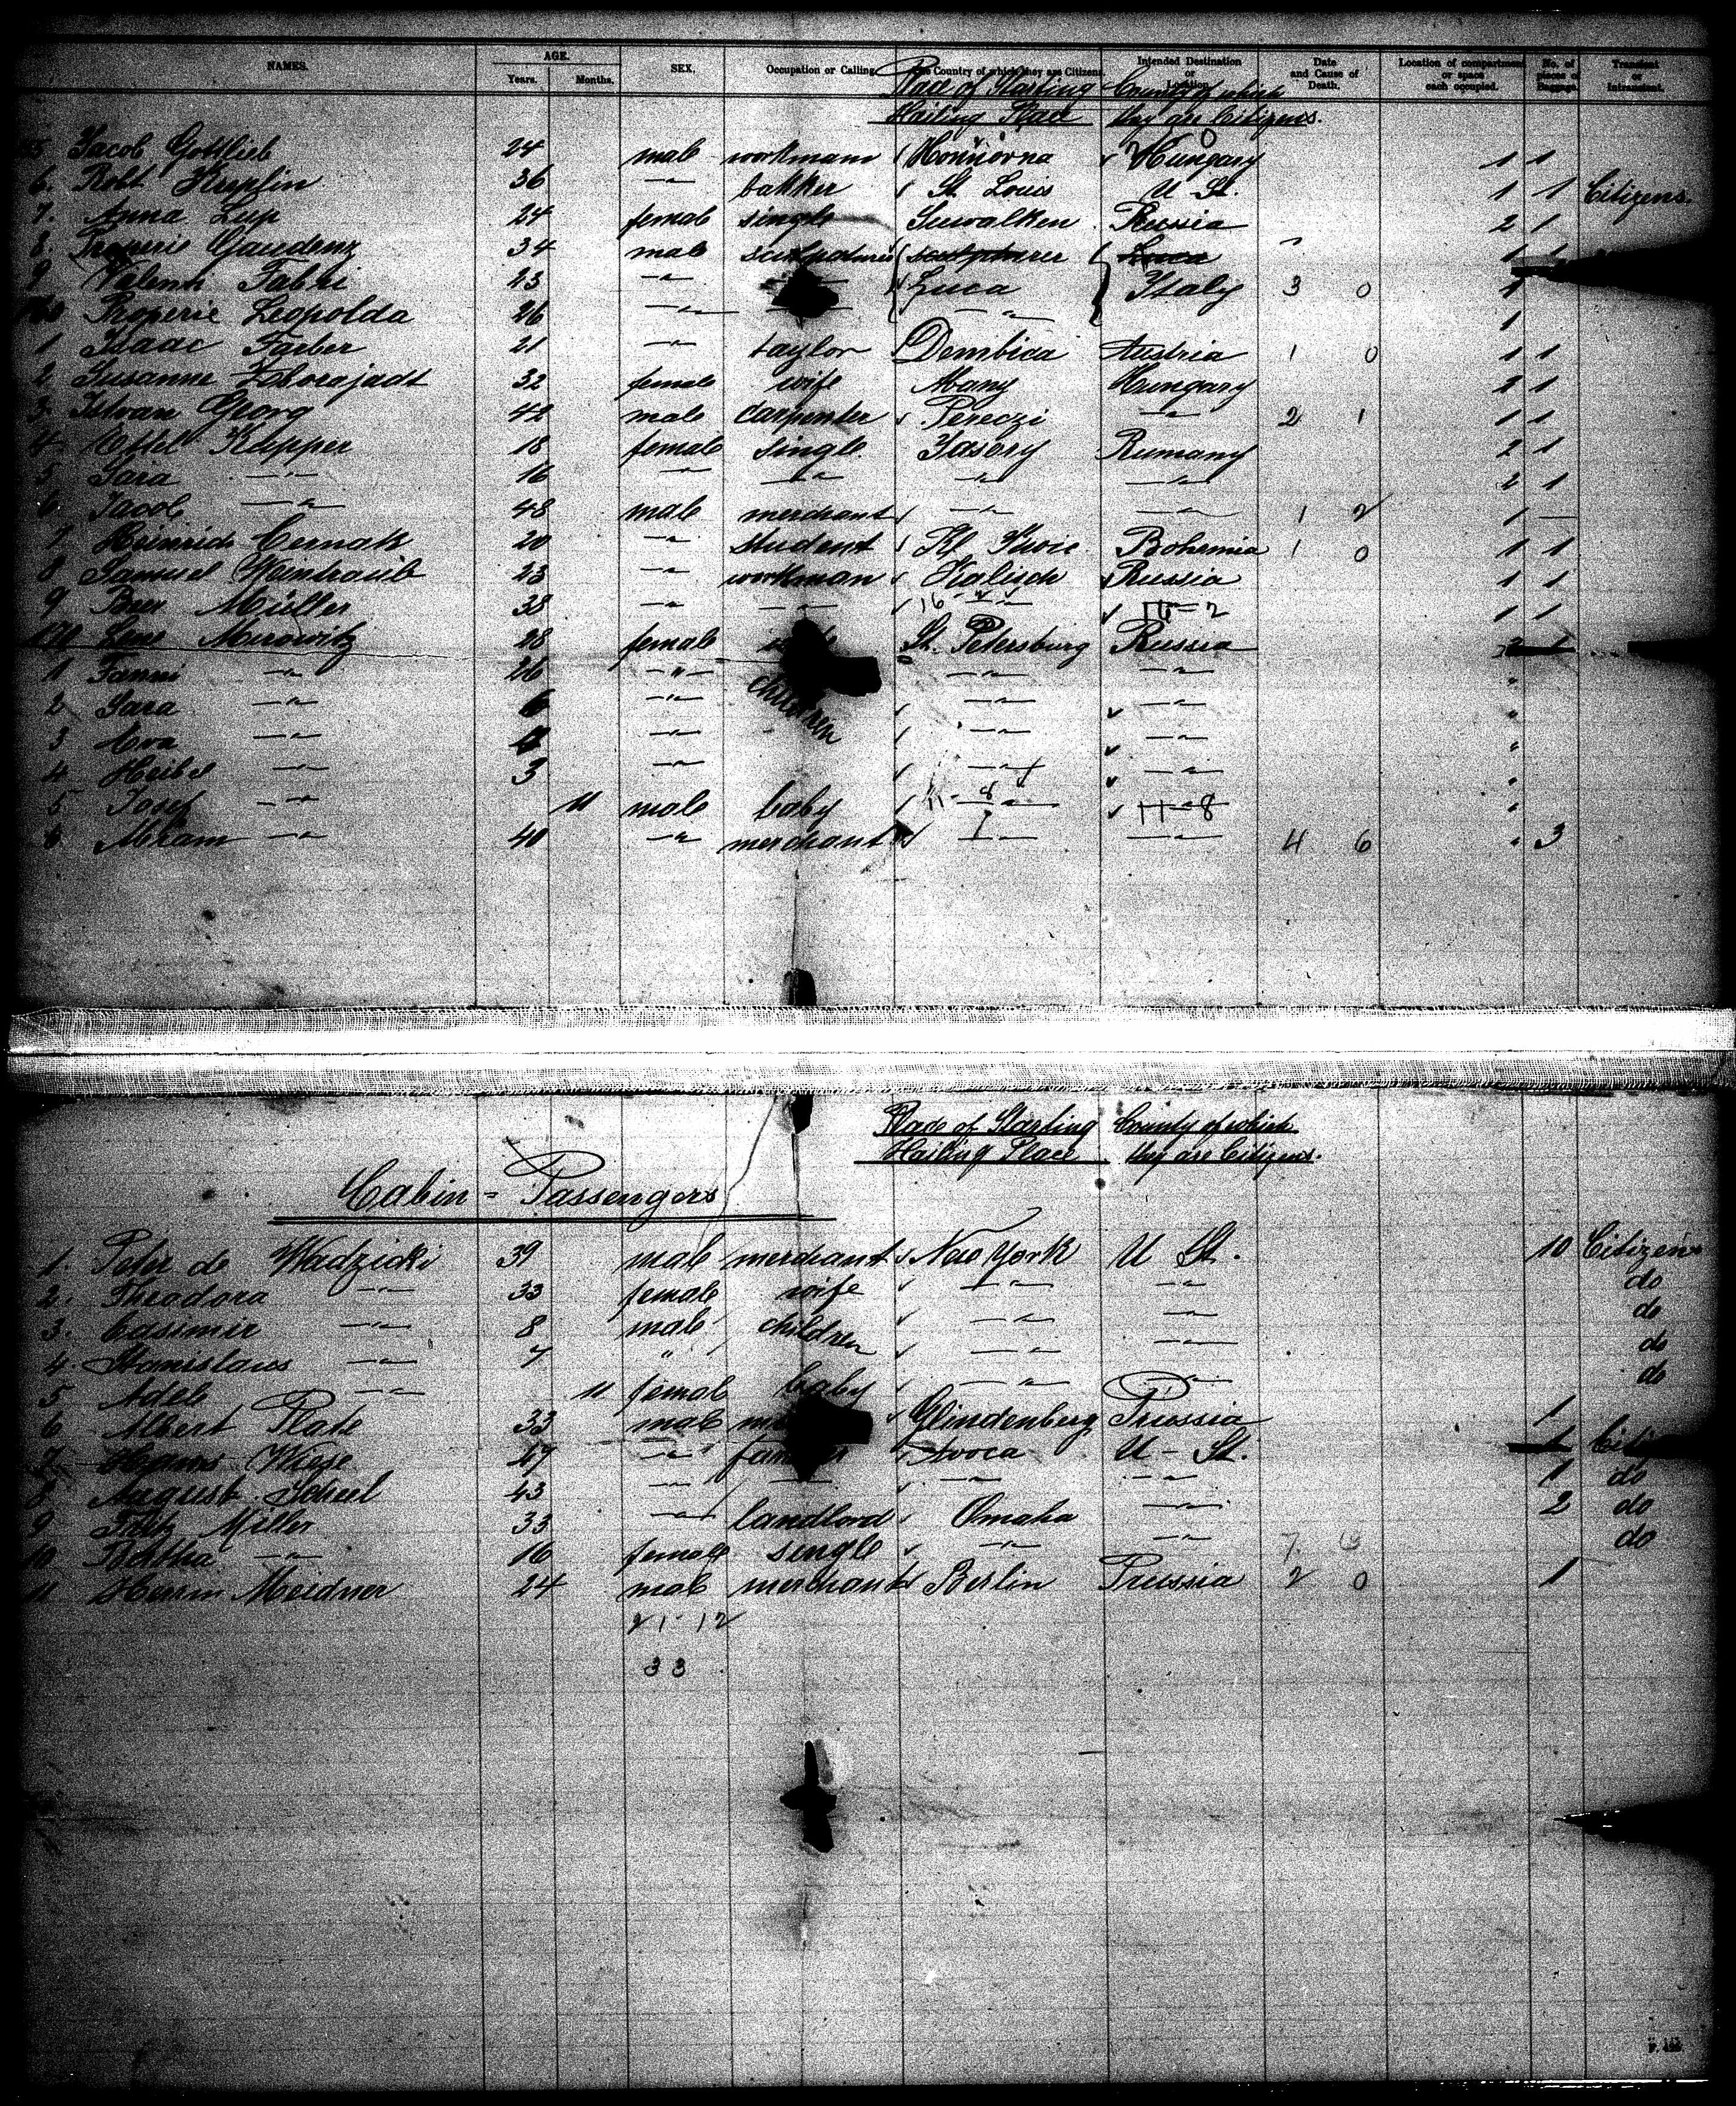 NAMES. AGE. Years. Months. SEX. Occupation or Calling. The Country of which they are Citizens. Intended Destination or Location. Date and Cause of Death. Location of compartment or space each occupied. No. of pieces of Baggage. Transient or Intransient.
Place of Starting County of which
Hailing Place they are Citizens.
Jacob Gottlieb 24 male workman Hungary 1 1
6. Robt 36 —"— bakker St. Louis U St. 1 1 Citizens.
7. Anna Lup 24 female single Suwalken Russia 2 1
8. Gaudenz 34 male
9 Fabri 23 —"— Luca Italy 3 0
Leopolda 26 —"— —"— —"— 1
1 Isaac Farber 21 —"— taylor Dembica Austria 1 0 1 1
2 Susanne 32 female wife Abany Hungary 2 1
3. Istvan Georg 42 male carpenter Pereczi —"— 2 1 1 1
4. Ettel Kupper 18 female single Rumany 2 1
5 Sara —"— 16 —"— —"— —"— —"— 2 1
6 Jacob —"— 48 male merchant —"— —"— 1 2 1 —
7 Heinrich Cernak 20 —"— student Bohemia 1 0 1 1
8 Samuel Waintraub 23 —"— workman Kalisch Russia 1 1
9 Beer Müller 38 —"— —"— 16 - 2 1 1
170 Murowitz 28 female St. Petersburg Russia
1 Fanni —"— 26 —"— —"— —"— "
2 Sara —"— 6 —"— children —"— —"— "
3 Eva —"— 4 —"— —"— —"— "
4 Heibel —"— 3 —"— —"— —"— "
5 Josef —"— 11 male baby 11 - 8 11 - 8 "
6 Abram —"— 40 —"— merchant —"— —"— 4 6 " 3
Place of Starting County of which
Hailing Place they are Citizens.
Cabin = Passengers
1. Peter de Wadzicki 39 male merchant New York U St. 10 Citizens
2. Theodora —"— 33 female wife —"— —"— do
3. Casimir —"— 8 male children —"— —"— do
4. Stanislaus —"— 7 " —"— —"— do
5 Adele —"— 11 female baby —"— —"— do
6 Albert Plate 33 male Glindenberg Prussia 1
7 Hans Wiese 47 —"— Avoca U - St. 1
8 August Scheel 43 —"— —"— —"— —"— 1 do
9 Fritz Miller 33 —"— landlord Omaha —"— 2 do
10 Bertha —"— 16 female single —"— —"— do
11 Herm Meidner 24 male merchant Berlin Prussia 2 0 1
21 - 12
33